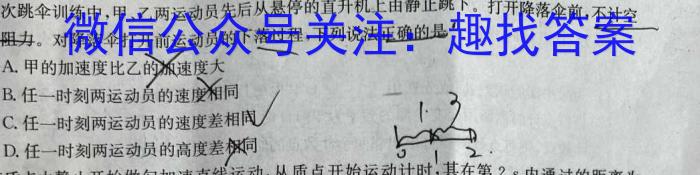 次跳伞训练中,甲、乙两运动员先后从悬停的直升机上由静止跳下。打开降落伞前,不计空
阻力。对降落伞打开前运动员的下落过程,下列说法正确的是
微信公众号关注:趣找答案
A. 甲的加速度比乙的加速度大
B. 任一时刻两运动员的速度相同
C. 任一时刻两运动员的速度差相同
D. 任一时刻两运动员的高度差相同
1 3
0 1 2
从质点开始运动计时,其在第2s内通过的距离为